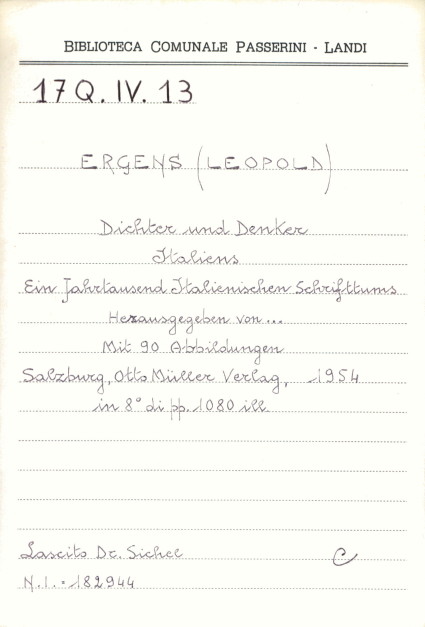 BIBLIOTECA COMUNALE PASSERINI - LANDI
17 Q. IV. 13
ERGENS (LEOPOLD)
Dichter und Denker
Italiens
Ein Jahrtausend Italienischen Schrifttums
Herausgegeben von...
Mit 90 Abbildungen
Salzburg, Otto Müller Verlag, 1954
in 8° di pp. 1080 ill.
Lascito Dr. Sichel C
N.I. = 182944